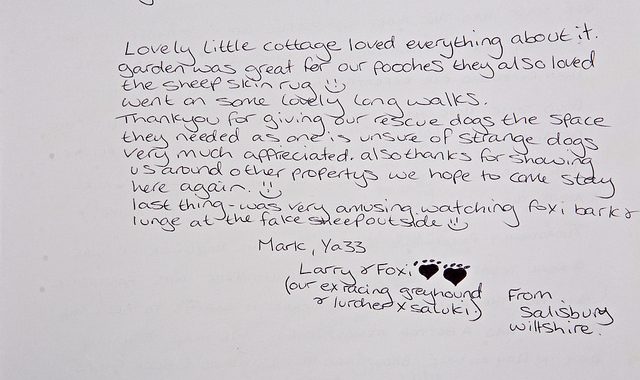 Lovely little cottage loved everything about it.
garden was great for our pooches they also loved
the sheep skin rug
went on some lovely long walks.
Thankyou for giving our rescue dogs the space
they needed as one is unsure of strange dogs
very much appreciated. also thanks for showing
us around other propertys we hope to come stay
here again.
last thing - was very amusing watching foxi bark &
lunge at the fake sheep outside
Mark, Ya33
Larry & Foxi
(our ex racing greyhound
& lurcher x saluki)
From
Salisbury
Wiltshire.